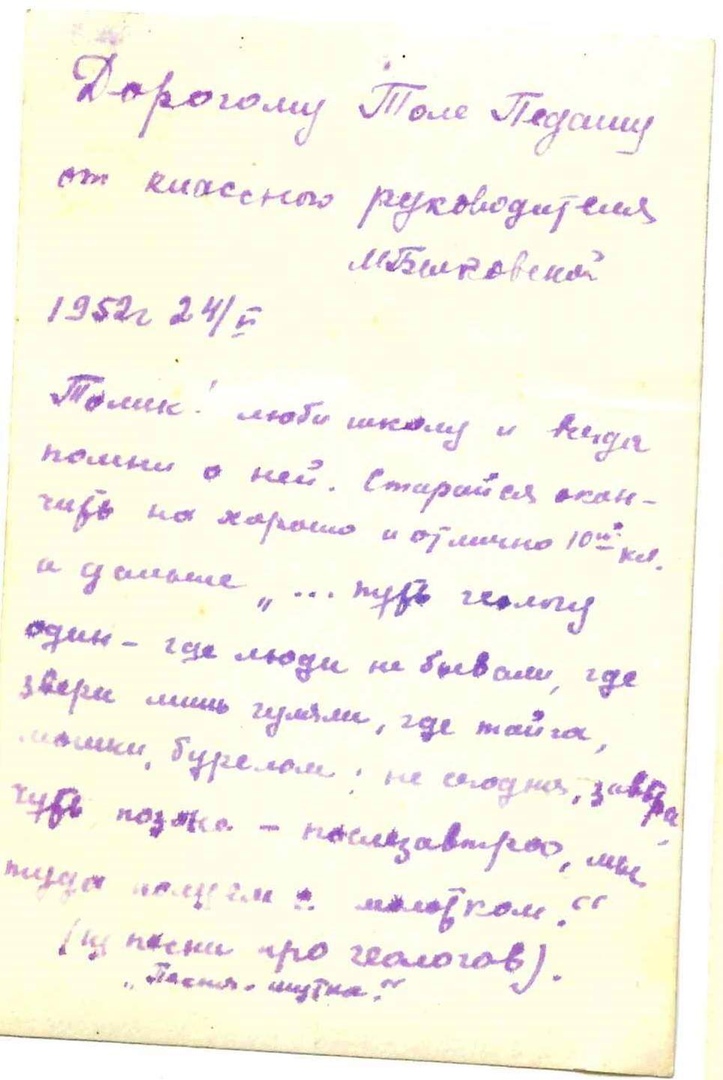 Дорогому Толе Педашу
от классного руководителя
М Белховской
1952г 24/V
Толик! люби школу и всегда
помни о ней. Старайся окон-
чить на хорошо и отлично 10ый кл.
а дальше „... путь геологу
один – где люди не бывали, где
звери лишь гуляли, где тайга,
мошки, бурелом; не сегодня, завтра,
чуть позже – послезавтра, мы
туда пойдём с молотком.“
(из песни про геологов).
„Песня-шутка.“